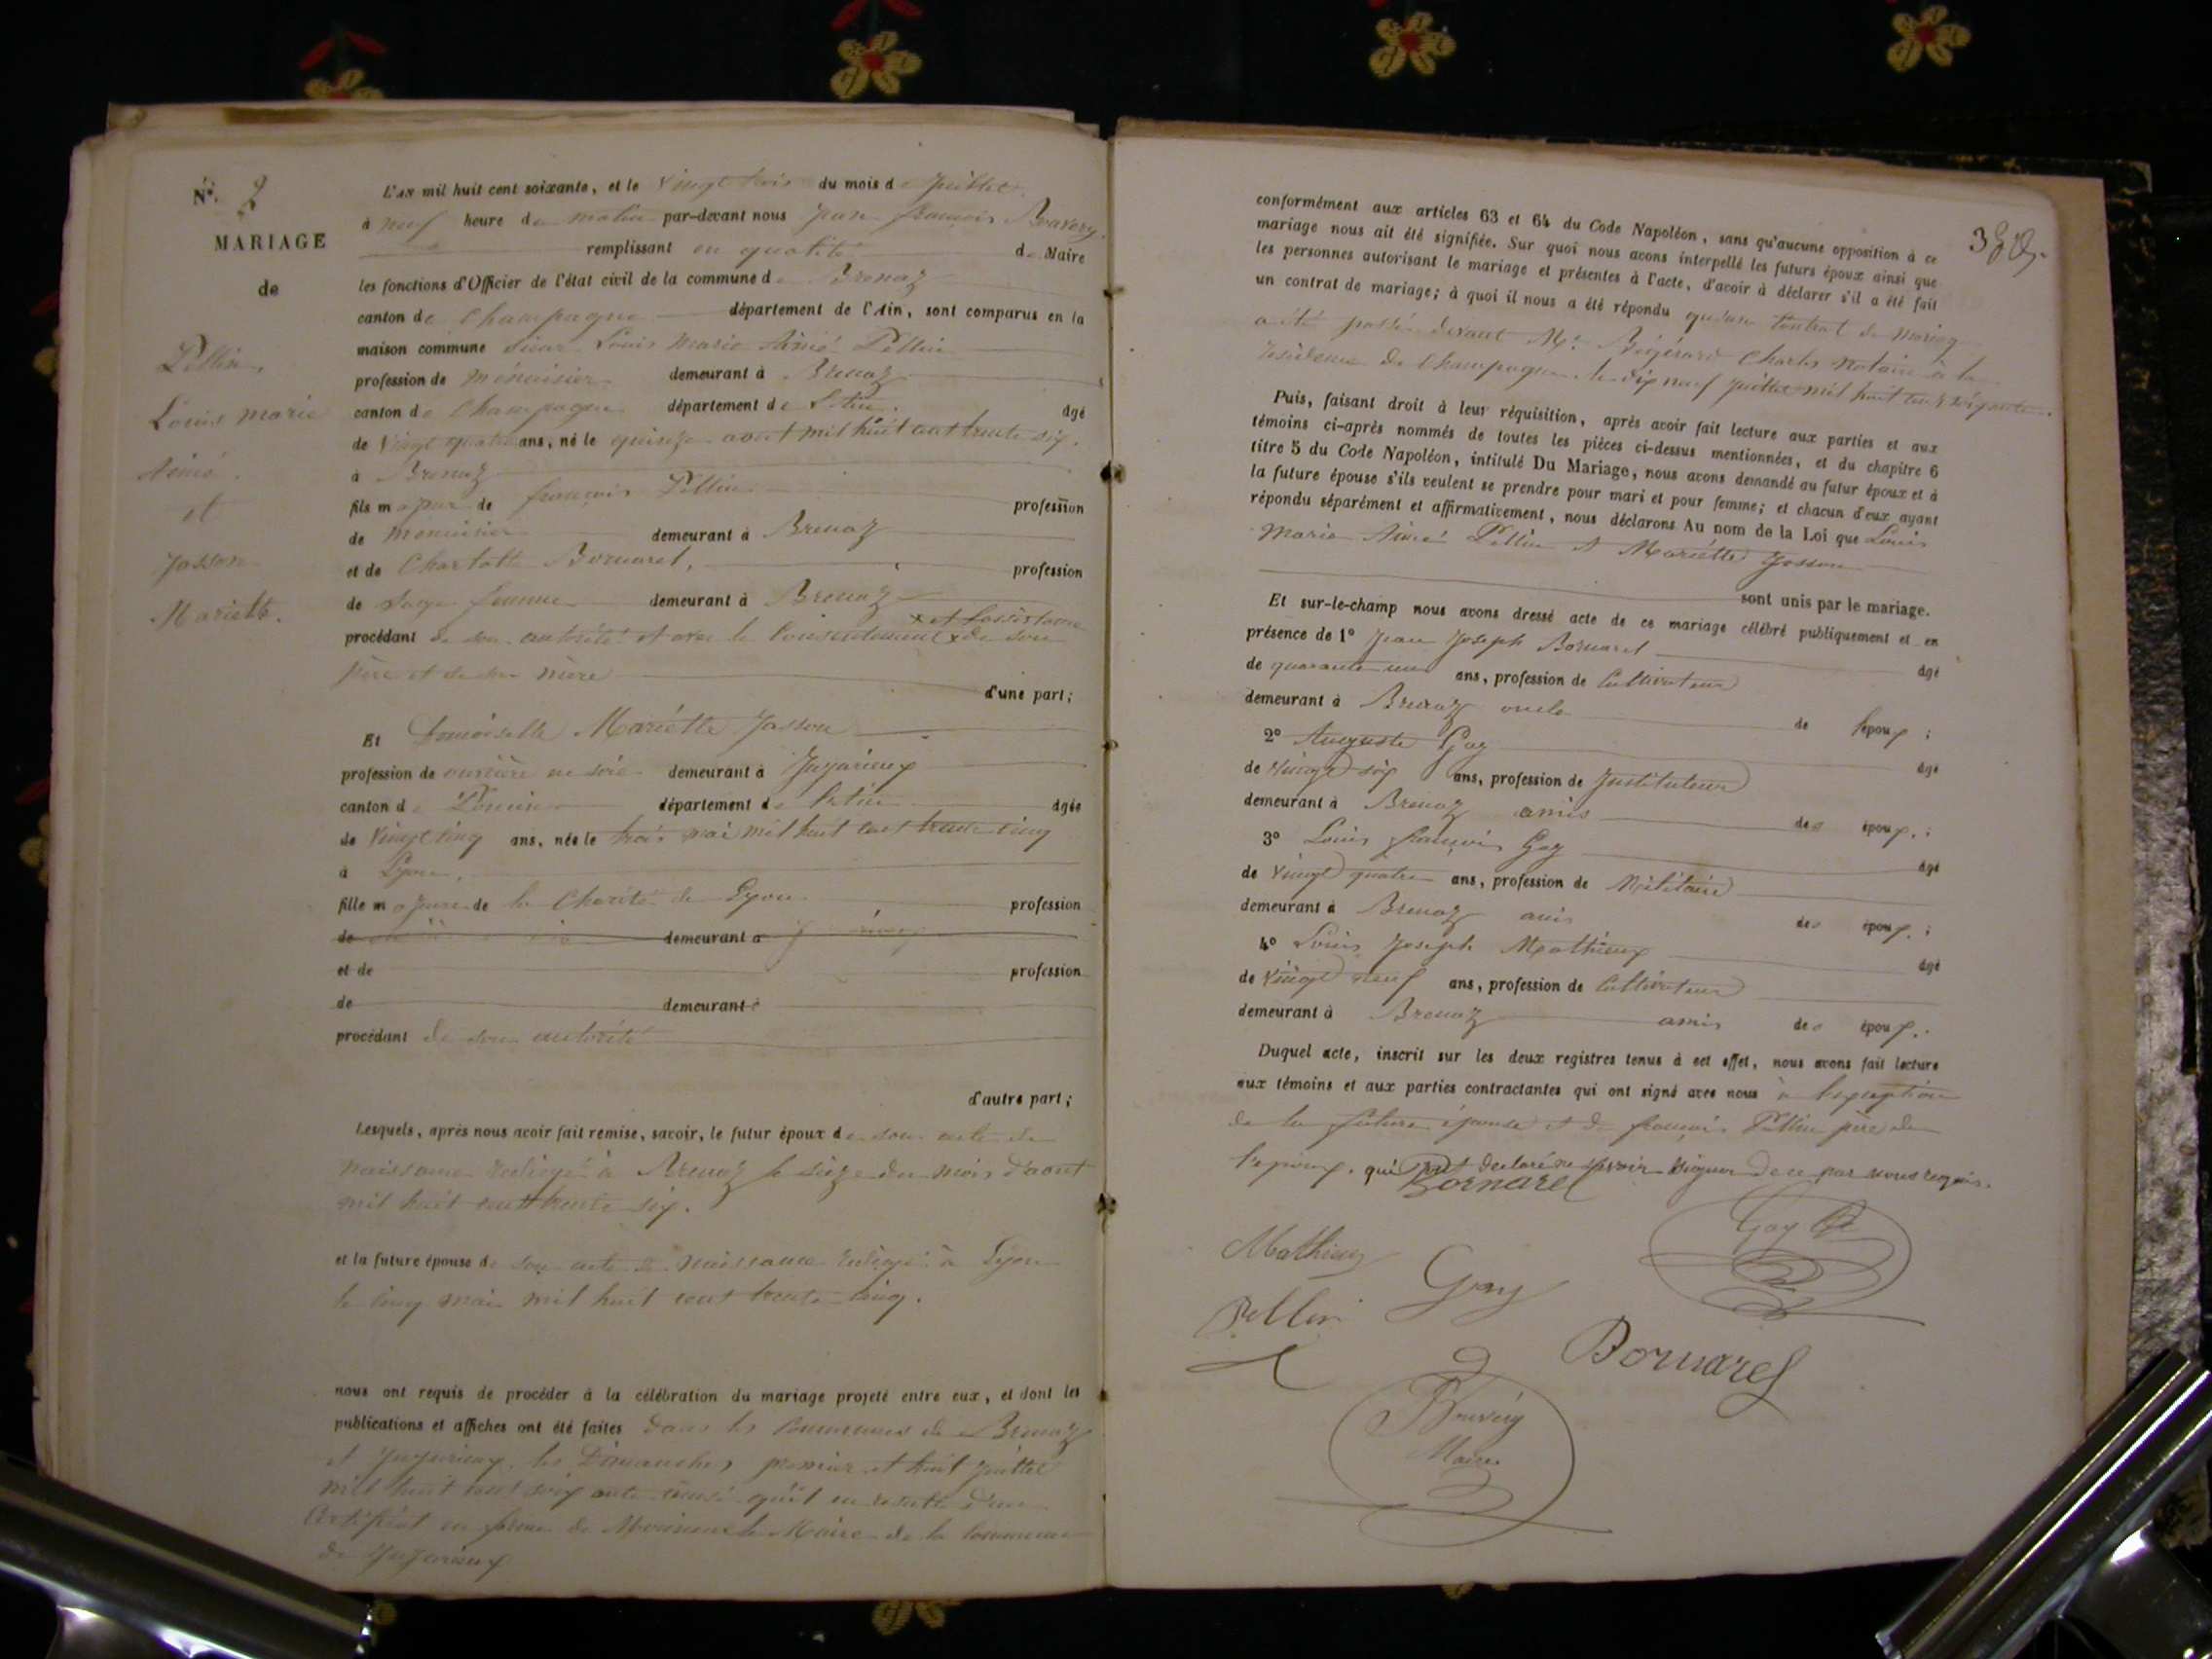 N°
MARIAGE
de
Pellin,
Louis Marie
Aimé.
et
Josson
Mariette.
L'AN mil huit cent soixante, et le vingt trois du mois de Juillet
à neuf heure du matin par-devant nous Jean françois Bouvery
remplissant en qualité de Maire
les fonctions d'Officier de l'état civil de la commune de Brenaz
canton de Champagne département de l'Ain, sont comparus en la
maison commune sieur Louis Marie Aimé Pellin
profession de menuisier demeurant à Brenaz
canton de Champagne département de l'Ain. âgé
de vingt quatre ans, né le quinze aout mil huit cent trente six.
à Brenaz
fils majeur de françois Pellin profession
de menuisier demeurant à Brenaz
et de Charlotte Bornarel, profession
de sage femme demeurant à Brenaz
x et l'assistance
procédant de son autorité et avec le consentement x de son
père et de sa mère
d'une part;
Et Demoiselle Mariette Josson
profession de ouvrière en soie demeurant à Jujurieux
canton de Poncin département de l'Ain âgée
de vingt cinq ans, née le trois mai mil huit cent trente cinq
à Lyon.
fille majeure de la Charité de Lyon profession
de demeurant à
et de profession
de demeurant à
procédant de son autorité
d'autre part;
Lesquels, après nous avoir fait remise, savoir, le futur époux de son acte de
naissance rédigé à Brenaz le seize du mois d'aout
mil huit cent trente six.
et la future épouse de son acte de naissance rédigé à Lyon
le cinq mai mil huit cent trente cinq.
nous ont requis de procéder à la célébration du mariage projeté entre eux, et dont les
publications et affiches ont été faites dans les communes de Brenaz
et Jujurieux les Dimanches premier et huit Juillet
mil huit cent soixante ainsi qu'il en résulte d'un
Certificat en forme de Monsieur le Maire de la commune
de Jujurieux
conformément aux articles 63 et 64 du Code Napoléon, sans qu'aucune opposition à ce
mariage nous ait été signifiée. Sur quoi nous avons interpellé les futurs époux ainsi que
les personnes autorisant le mariage et présentes à l'acte, d'avoir à déclarer s'il a été fait
un contrat de mariage; à quoi il nous a été répondu qu'un Contrat de mariag
a été passé devant Me. Charles Notaire à la
résidence de Champagne le dix neuf juillet mil huit cent soixante.
Puis, faisant droit à leur réquisition, après avoir fait lecture aux parties et aux
témoins ci-après nommés de toutes les pièces ci-dessus mentionnées, et du chapitre 6
titre 5 du Code Napoléon, intitulé Du Mariage, nous avons demandé au futur époux et à
la future épouse s'ils veulent se prendre pour mari et pour femme; et chacun d'eux ayant
répondu séparément et affirmativement, nous déclarons Au nom de la Loi que Louis
Marie Aimé Pellin et Mariette Josson
sont unis par le mariage.
Et sur-le-champ nous avons dressé acte de ce mariage célébré publiquement et en
présence de 1° Jean Joseph Bornarel âgé
de quarante un ans, profession de Cultivateur
demeurant à Brenaz oncle de l'époux;
2° Auguste Gay âgé
de vingt six ans, profession de Instituteur
demeurant à Brenaz amis des époux;
3° Louis françois Gay âgé
de vingt quatre ans, profession de Militaire
demeurant à Brenaz amis des époux;
4° Louis Joseph Mathieux âgé
de vingt neuf ans, profession de Cultivateur
demeurant à Brenaz amis des époux.
Duquel acte, inscrit sur les deux registres tenus à cet effet, nous avons fait lecture
aux témoins et aux parties contractantes qui ont signé avec nous à l'exception
de la future épouse et de françois Pellin père de
l'époux. qui ont declaré ne savoir signer de ce par nous requis.
Bornarel
Mathieux
Gay
Gay
Pellin
Bornarel
Bouvery
Maire